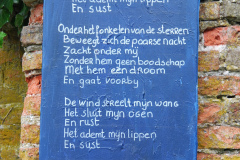 Het ademt mijn lippen
En sust
Onder het fonkelen van de sterren
Beweegt zich de paarse nacht
Zacht onder mij
Zonder hem geen boodschap
Met hem een droom
En gaat voorby
De wind streelt mijn wang
Het sluit mijn ogen
En rust
Het ademt mijn lippen
En sust